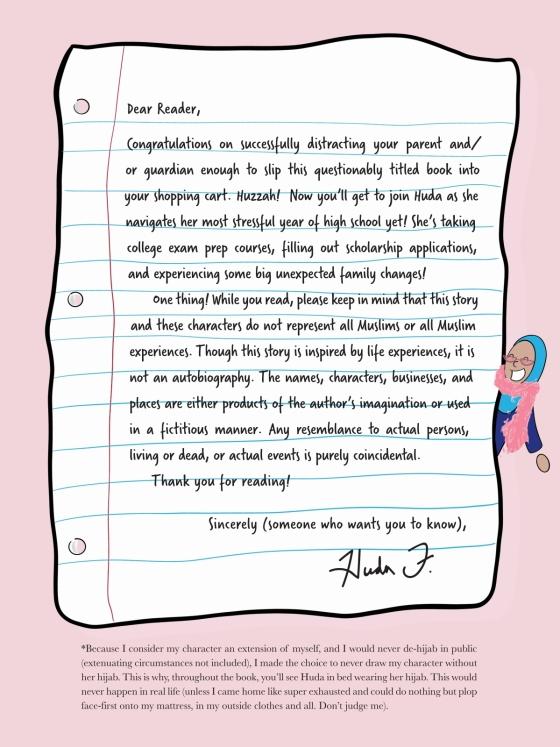 Dear Reader,
Congratulations on successfully distracting your parent and/
or guardian enough to slip this questionably titled book into
your shopping cart. Huzzah! Now you'll get to join Huda as she
navigates her most stressful year of high school yet! She's taking
college exam prep courses, filling out scholarship applications,
and experiencing some big unexpected family changes!
One thing! While you read, please keep in mind that this story
and these characters do not represent all Muslims or all Muslim
experiences. Though this story is inspired by life experiences, it is
not an autobiography. The names, characters, businesses, and
places are either products of the author's imagination or used
in a fictitious manner. Any resemblance to actual persons,
living or dead, or actual events is purely coincidental.
Thank you for reading!
Sincerely (someone who wants you to know),
Huda F.
*Because I consider my character an extension of myself, and I would never de-hijab in public
(extenuating circumstances not included), I made the choice to never draw my character without
her hijab. This is why, throughout the book, you'll see Huda in bed wearing her hijab. This would
never happen in real life (unless I came home like super exhausted and could do nothing but plop
face-first onto my mattress, in my outside clothes and all. Don't judge me).